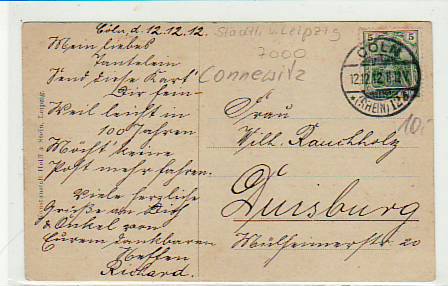 Cöln, d. 12.12.12.
Mein liebes
Tantelein
Send diese Kart'
Dir fein-
Weil leicht in
100 Jahren
Möcht' keine
Post mehr fahren.
Viele herzliche
Grüße an Dich
& Onkel von
Eurem dankbaren
Neffen
Richard.
Leipzig
7000
Connewitz
5 5
CÖLN
12.12.12.11-12V
*(RHEIN)1
10.-
Frau
Wilh. Rauchholz
Duisburg
Mülheimerstr 20
Leipzig.